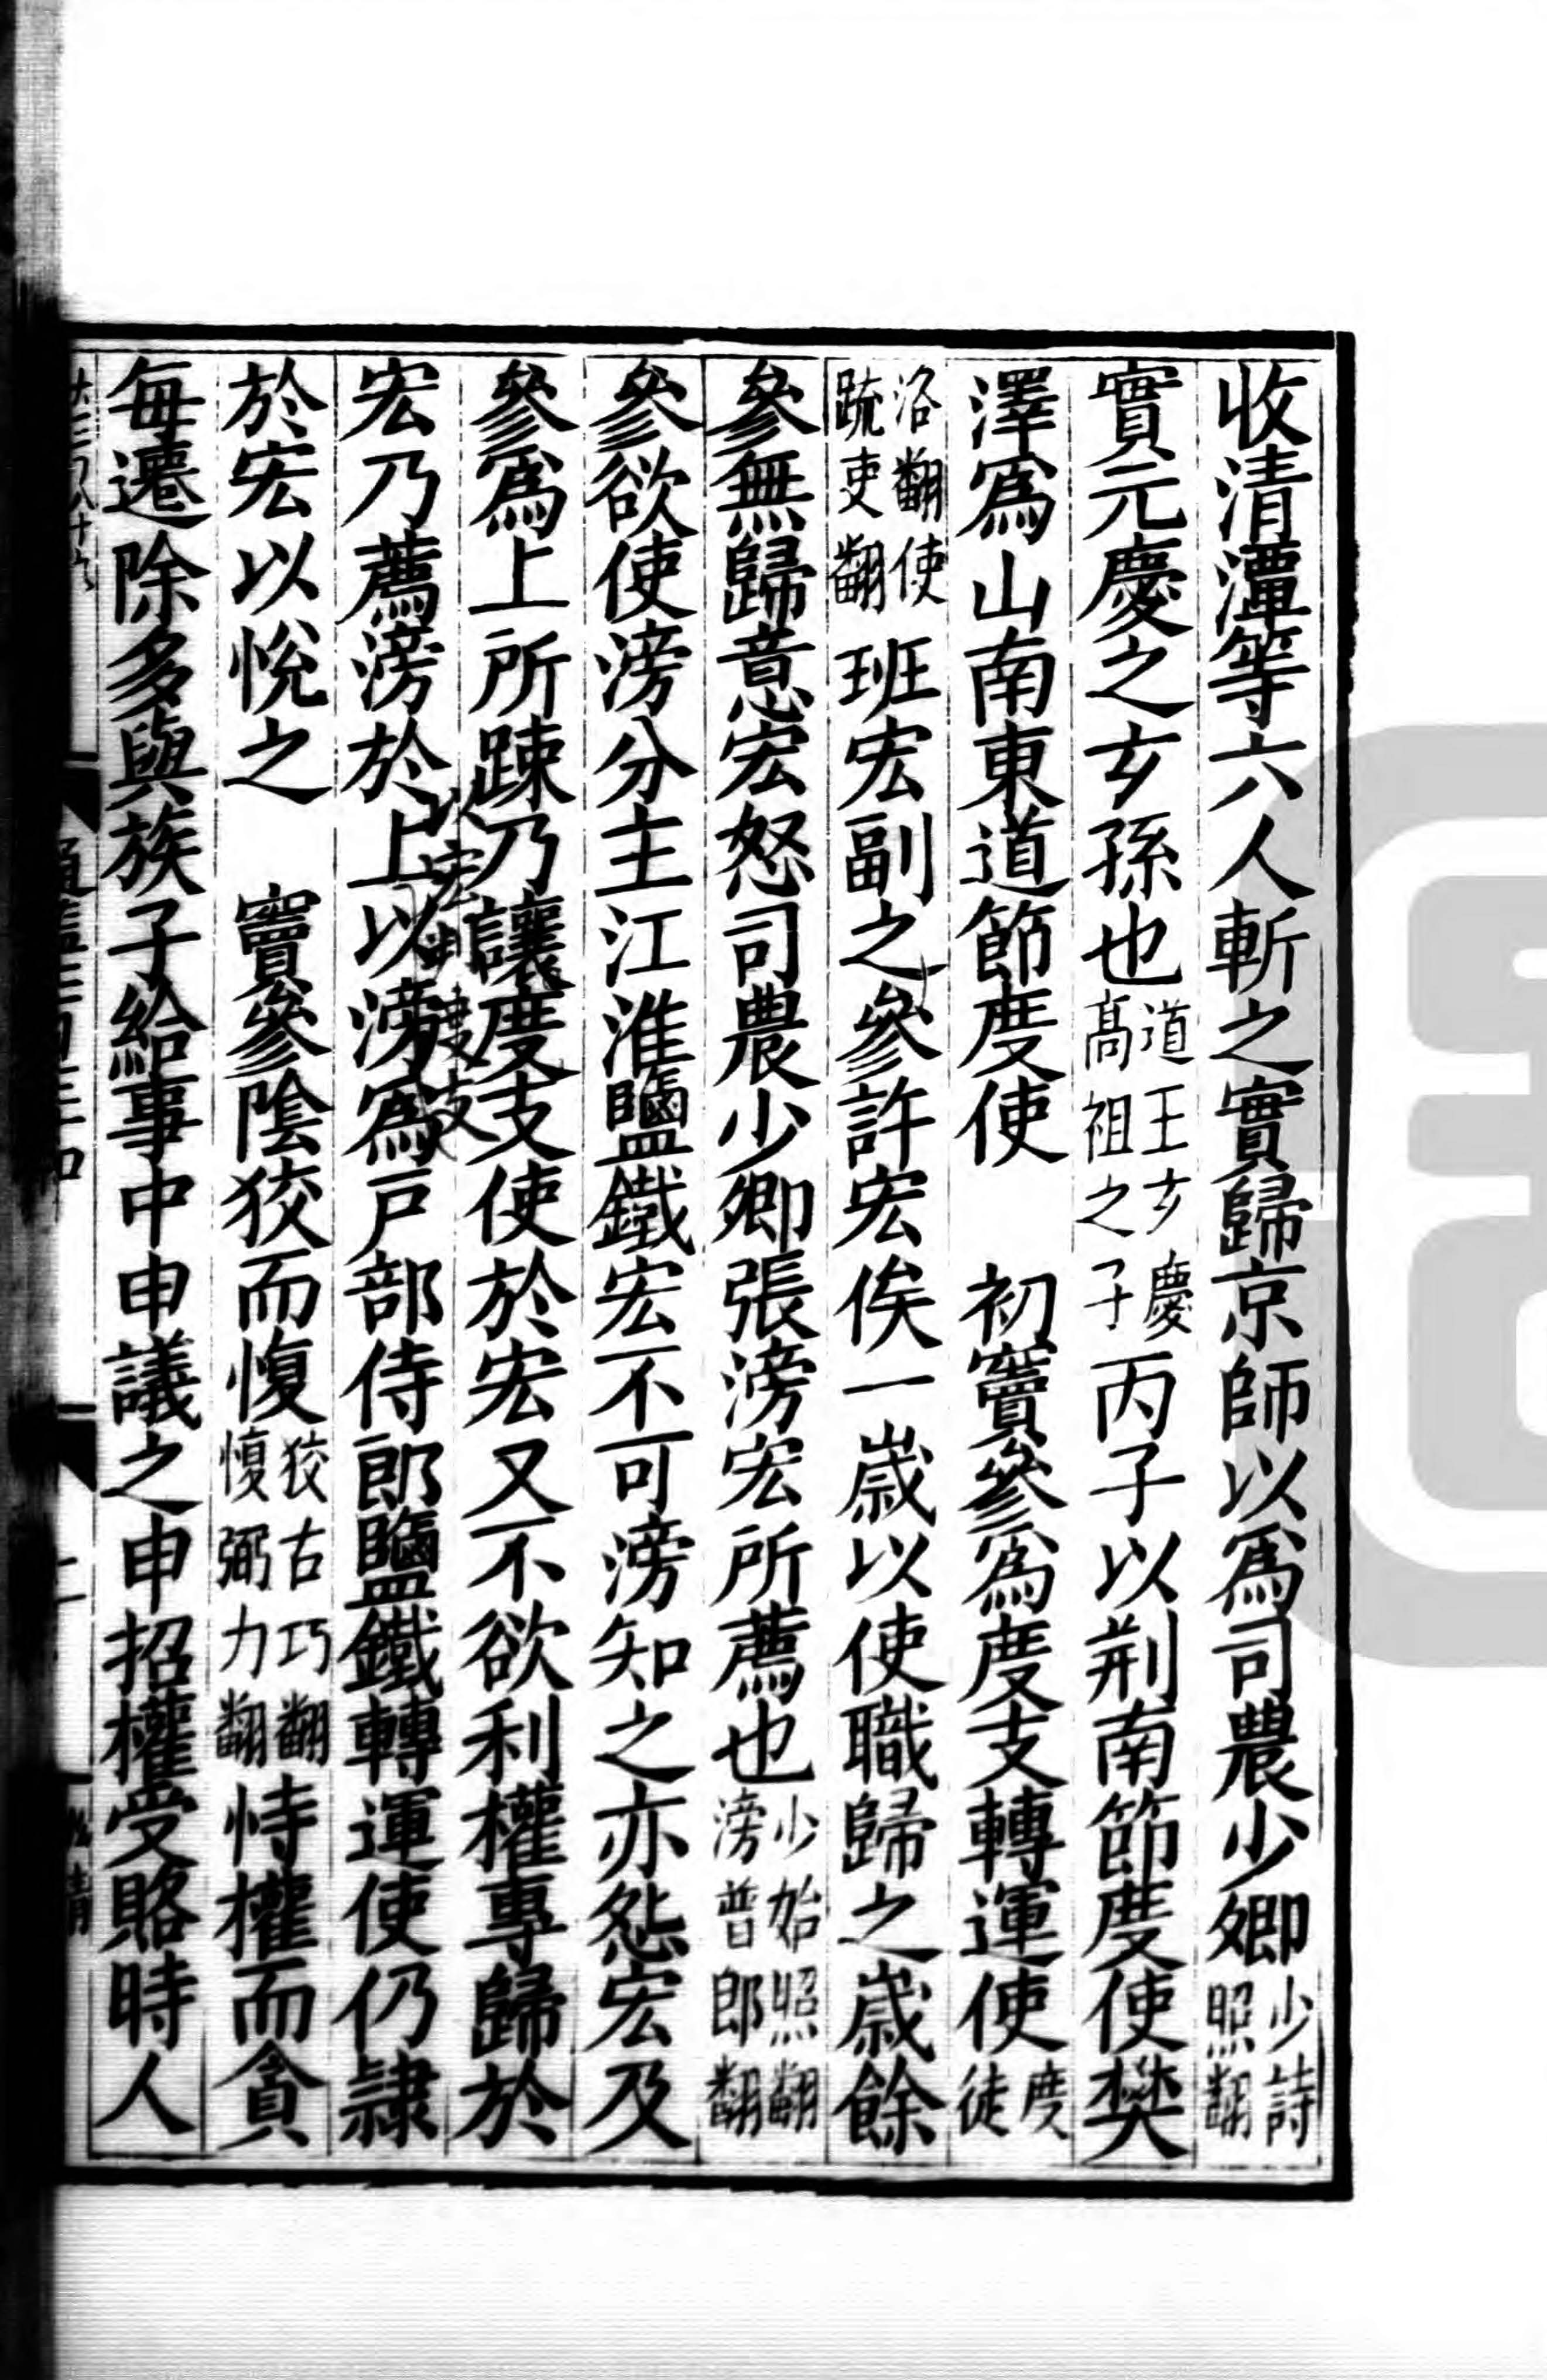 收清潭等六人斬之實歸京師以爲司農少卿少詩照翻
實元慶之玄孫也道王玄慶高祖之子丙子以荆南節度使樊
澤爲山南東道節度使 初竇參爲度支轉運使度徒
洛翻使疏吏翻班宏副之參許宏俟一歲以使職歸之歲餘
參無歸意宏怒司農少卿張滂宏所薦也少始照翻滂普郎翻
參欲使滂分主江淮鹽鐵宏不可滂知之亦怨宏及
參爲上所踈乃讓度支使於宏又不欲利權專歸於
宏乃薦滂於上以滂爲戸部侍郎鹽鐵轉運使仍隷
於宏以悅之 竇參陰狡而愎狡古巧翻愎弼力翻恃權而貪
每遷除多與族子給事中申議之申招權受賂時人